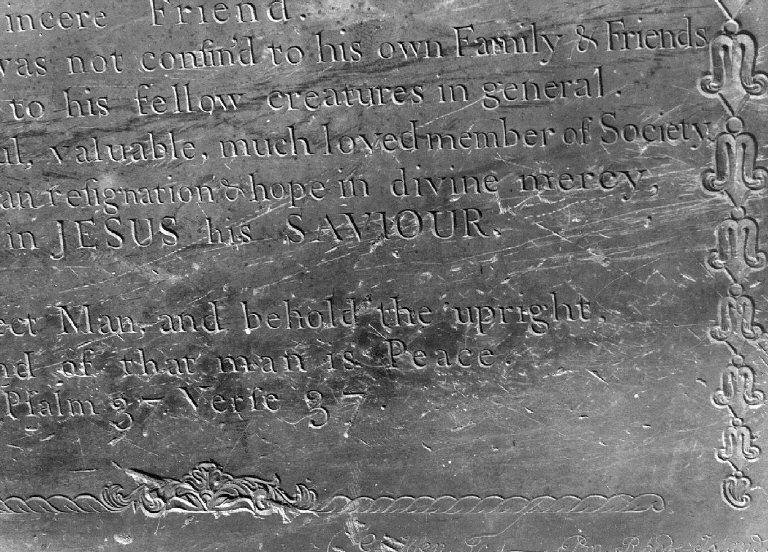 incere Friend.
was not confin'd to his own Family & Friends
to his fellow creatures in general.
ul, valuable, much loved member of Society.
an resignation & hope in divine mercy,
in JESUS his SAVIOUR.
ect Man, and behold the upright,
nd of that man is Peace.
Psalm 37 Verse 37.